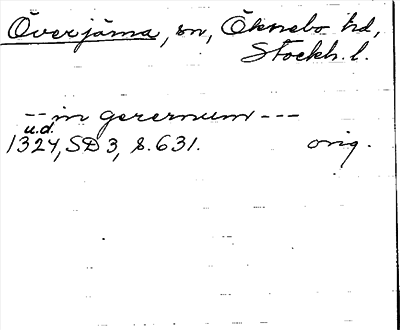 Överjärna, sn, Öknebo hd,
Stockh. l.
-- in gerernum ---
u.d.
1324, SD 3, s. 631. orig.